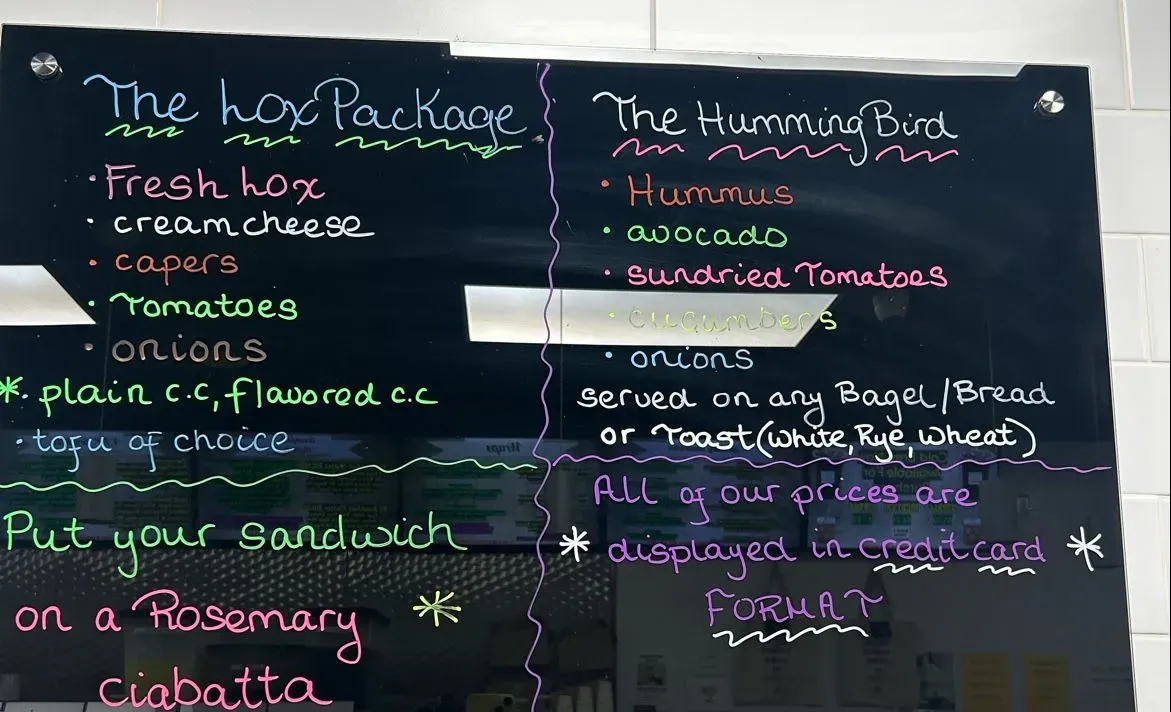 The Lox Package
• Fresh Lox
• cream cheese
• capers
• Tomatoes
• onions
*• plain c.c, flavored c.c
• tofu of choice
Put your sandwich
on a Rosemary *
ciabatta
The Humming Bird
• Hummus
• avocado
• sundried Tomatoes
• cucumbers
• onions
served on any Bagel/Bread
or Toast (white, Rye, wheat)
All of our prices are
* displayed in credit card *
FORMAT